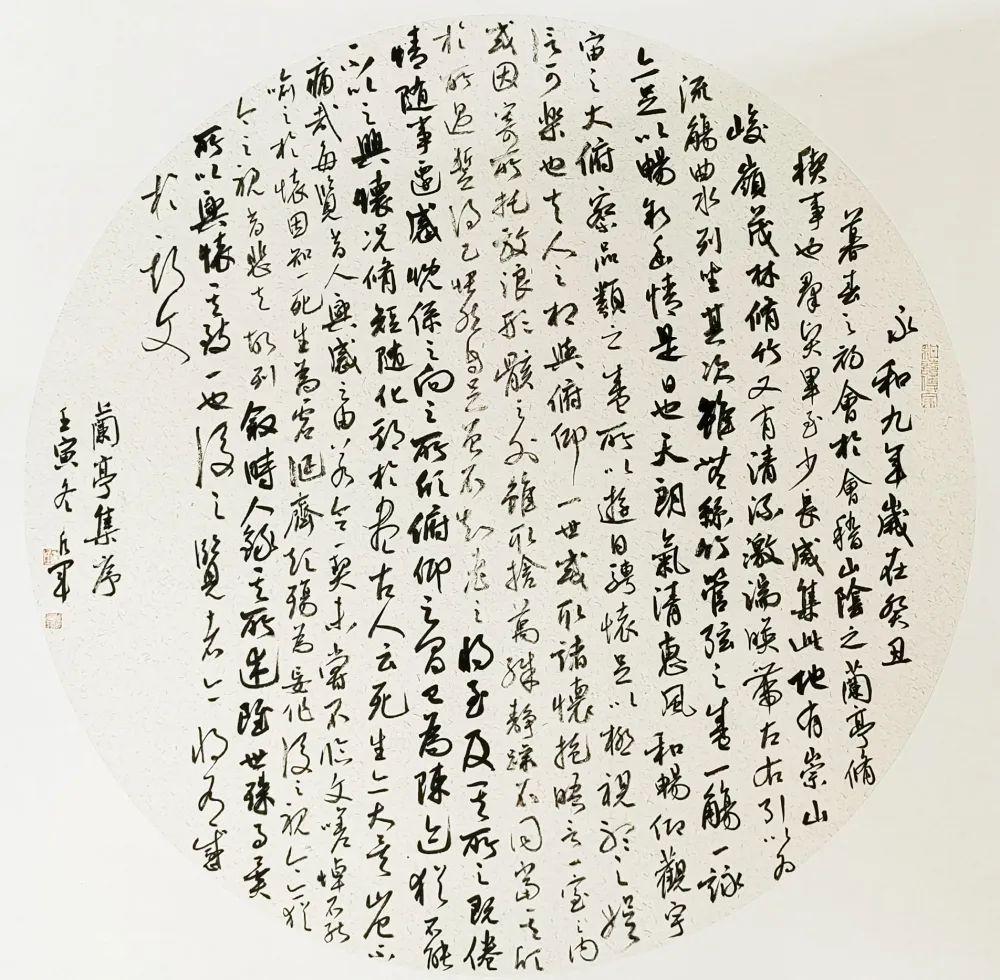 永和九年歲在癸丑
暮春之初會於會稽山陰之蘭亭脩
稧事也群賢畢至少長咸集此地有崇山
峻嶺茂林脩竹又有清流激湍暎帶左右引以為
流觴曲水列坐其次雖無絲竹管弦之盛一觴一詠
亦足以暢敘幽情是日也天朗氣清惠風和暢仰觀宇
宙之大俯察品類之盛所以遊目騁懷足以極視聽之娛
信可樂也夫人之相與俯仰一世或取諸懷抱晤言一室之內
或因寄所托放浪形骸之外雖取捨萬殊靜躁不同當其欣
於所遇暫得己怏然自足曾不知老之將至及其所之既倦
情隨事遷感慨係之向之所欣俯仰之間已為陳迹猶不能
不以之興懷況脩短隨化終於盡古人云死生亦大矣豈不
痛哉每覽昔人興感之由若合一契未嘗不臨文嗟悼不能
喻之於懷固知一死生為虛誕齊彭殤為妄作後之視今亦猶
今之視昔悲夫故列敘時人錄其所述雖世殊事異
所以興懷其致一也後之覽者亦將有感
於斯文
蘭亭集序
壬寅冬